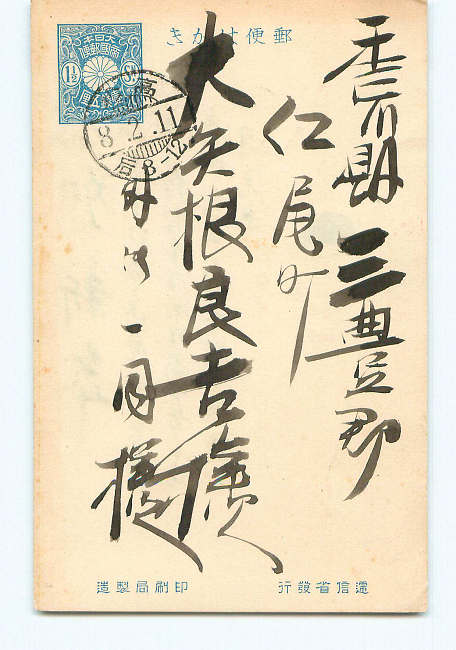 郵便はかき
大日本
帝國郵便
1½
壹錢五厘
8.2.11
后8-12
香川縣三豊郡
仁尾町
大矢根良吉様
一同様
遞信省發行
印刷局製造